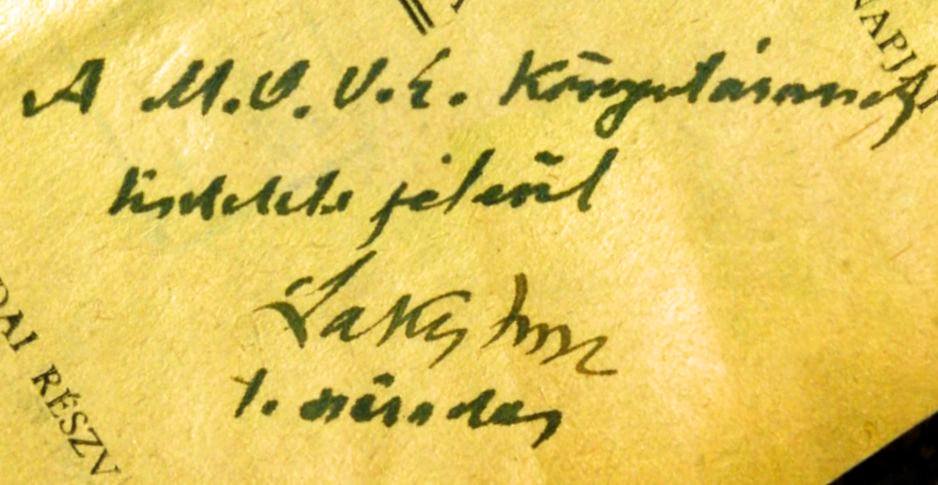 NAPJA
A M.O.V.E. Könyvtárának
tisztelete jeléül
Laky Imre
t. százados
DAI RÉSZV